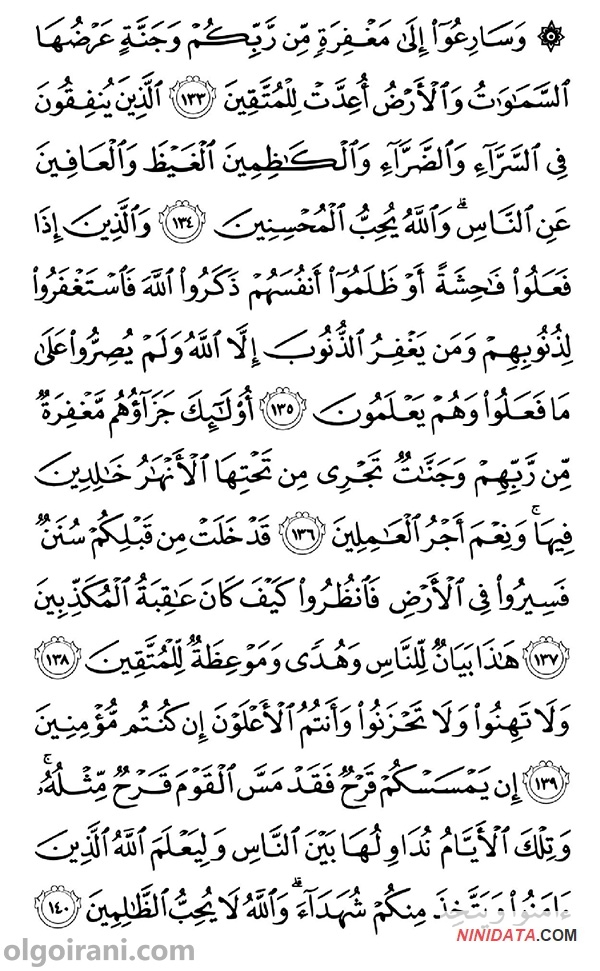 ۞ وَسَارِعُوٓاْ إِلَىٰ مَغْفِرَةٖ مِّن رَّبِّكُمْ وَجَنَّةٍ عَرْضُهَا
ٱلسَّمَٰوَٰتُ وَٱلْأَرْضُ أُعِدَّتْ لِلْمُتَّقِينَ ١٣٣ ٱلَّذِينَ يُنفِقُونَ
فِي ٱلسَّرَّآءِ وَٱلضَّرَّآءِ وَٱلْكَٰظِمِينَ ٱلْغَيْظَ وَٱلْعَافِينَ
عَنِ ٱلنَّاسِۗ وَٱللَّهُ يُحِبُّ ٱلْمُحْسِنِينَ ١٣٤ وَٱلَّذِينَ إِذَا
فَعَلُواْ فَٰحِشَةً أَوْ ظَلَمُوٓاْ أَنفُسَهُمْ ذَكَرُواْ ٱللَّهَ فَٱسْتَغْفَرُواْ
لِذُنُوبِهِمْ وَمَن يَغْفِرُ ٱلذُّنُوبَ إِلَّا ٱللَّهُ وَلَمْ يُصِرُّواْ عَلَىٰ
مَا فَعَلُواْ وَهُمْ يَعْلَمُونَ ١٣٥ أُوْلَٰٓئِكَ جَزَآؤُهُم مَّغْفِرَةٞ
مِّن رَّبِّهِمْ وَجَنَّٰتٞ تَجْرِي مِن تَحْتِهَا ٱلْأَنْهَٰرُ خَٰلِدِينَ
فِيهَاۚ وَنِعْمَ أَجْرُ ٱلْعَٰمِلِينَ ١٣٦ قَدْ خَلَتْ مِن قَبْلِكُمْ سُنَنٞ
فَسِيرُواْ فِي ٱلْأَرْضِ فَٱنظُرُواْ كَيْفَ كَانَ عَٰقِبَةُ ٱلْمُكَذِّبِينَ
١٣٧ هَٰذَا بَيَانٞ لِّلنَّاسِ وَهُدٗى وَمَوْعِظَةٞ لِّلْمُتَّقِينَ ١٣٨
وَلَا تَهِنُواْ وَلَا تَحْزَنُواْ وَأَنتُمُ ٱلْأَعْلَوْنَ إِن كُنتُم مُّؤْمِنِينَ
١٣٩ إِن يَمْسَسْكُمْ قَرْحٞ فَقَدْ مَسَّ ٱلْقَوْمَ قَرْحٞ مِّثْلُهُۥۚ
وَتِلْكَ ٱلْأَيَّامُ نُدَاوِلُهَا بَيْنَ ٱلنَّاسِ وَلِيَعْلَمَ ٱللَّهُ ٱلَّذِينَ
ءَامَنُواْ وَيَتَّخِذَ مِنكُمْ شُهَدَآءَۗ وَٱللَّهُ لَا يُحِبُّ ٱلظَّٰلِمِينَ ١٤٠
NINIDATA.COM
olgoirani.com